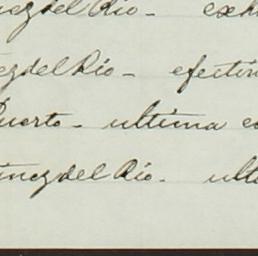 nez del Rio - exh
ez del Rio - efectiv
Puerto - ultima e
inez del Rio. ult